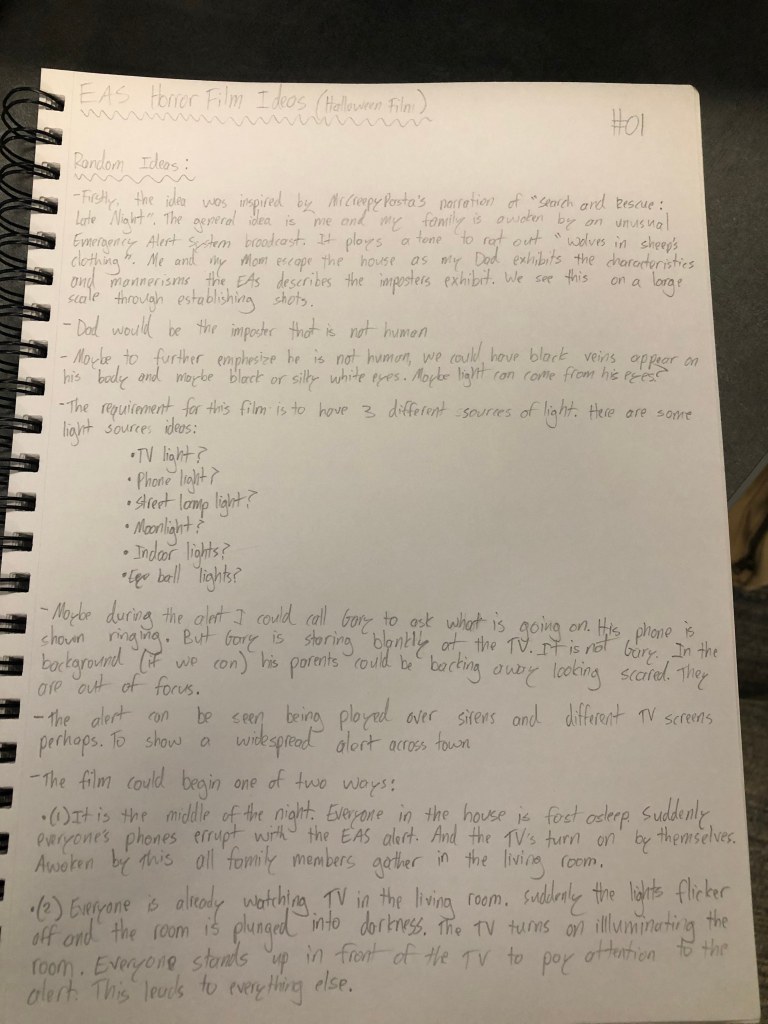 EAS Horror Film Ideas (Halloween Film)
#01
Random Ideas:
-Firstly, the idea was inspired by MrCreepyPasta's narration of "Search and Rescue:
Late Night". The general idea is me and my family is awoken by an unusual
Emergency Alert System broadcast. It plays a tone to rat out "wolves in sheep's
clothing". Me and my Mom escape the house as my Dad exhibits the characteristics
and mannerisms the EAs describes the imposters exhibit. We see this on a large
scale through establishing shots.
- Dad would be the imposter that is not human
- Maybe to further emphesize he is not human, we could have black veins appear on
his body and maybe black or silly white eyes. Maybe light can come from his eyes?
-The requirement for this film is to have 3 different sources of light. Here are some
light sources ideas:
• TV light?
• Phone light?
• Street lamp light?
• Moonlight?
• Indoor lights?
• Eye ball lights?
- Maybe during the alert I could call Gary to ask what is going on. His phone is
shown ringing. But Gary is staring blankly at the TV. It is not Gary. In the
background (if we can) his parents could be backing away looking scared. They
are out of focus.
-The alert can be seen being played over sirens and different TV screens
perhaps. To show a widespread alert across town
-The film could begin one of two ways:
•(1) It is the middle of the night. Everyone in the house is fast asleep. Suddenly
everyone's phones errupt with the EAS alert. And the TV's turn on by themselves.
Awoken by this all family members gather in the living room.
•(2) Everyone is already watching TV in the living room. Suddenly the lights flicker
off and the room is plunged into darkness. The TV turns on illluminating the
room. Everyone stands up in front of the TV to pay attention to the
alert. This leads to everything else.